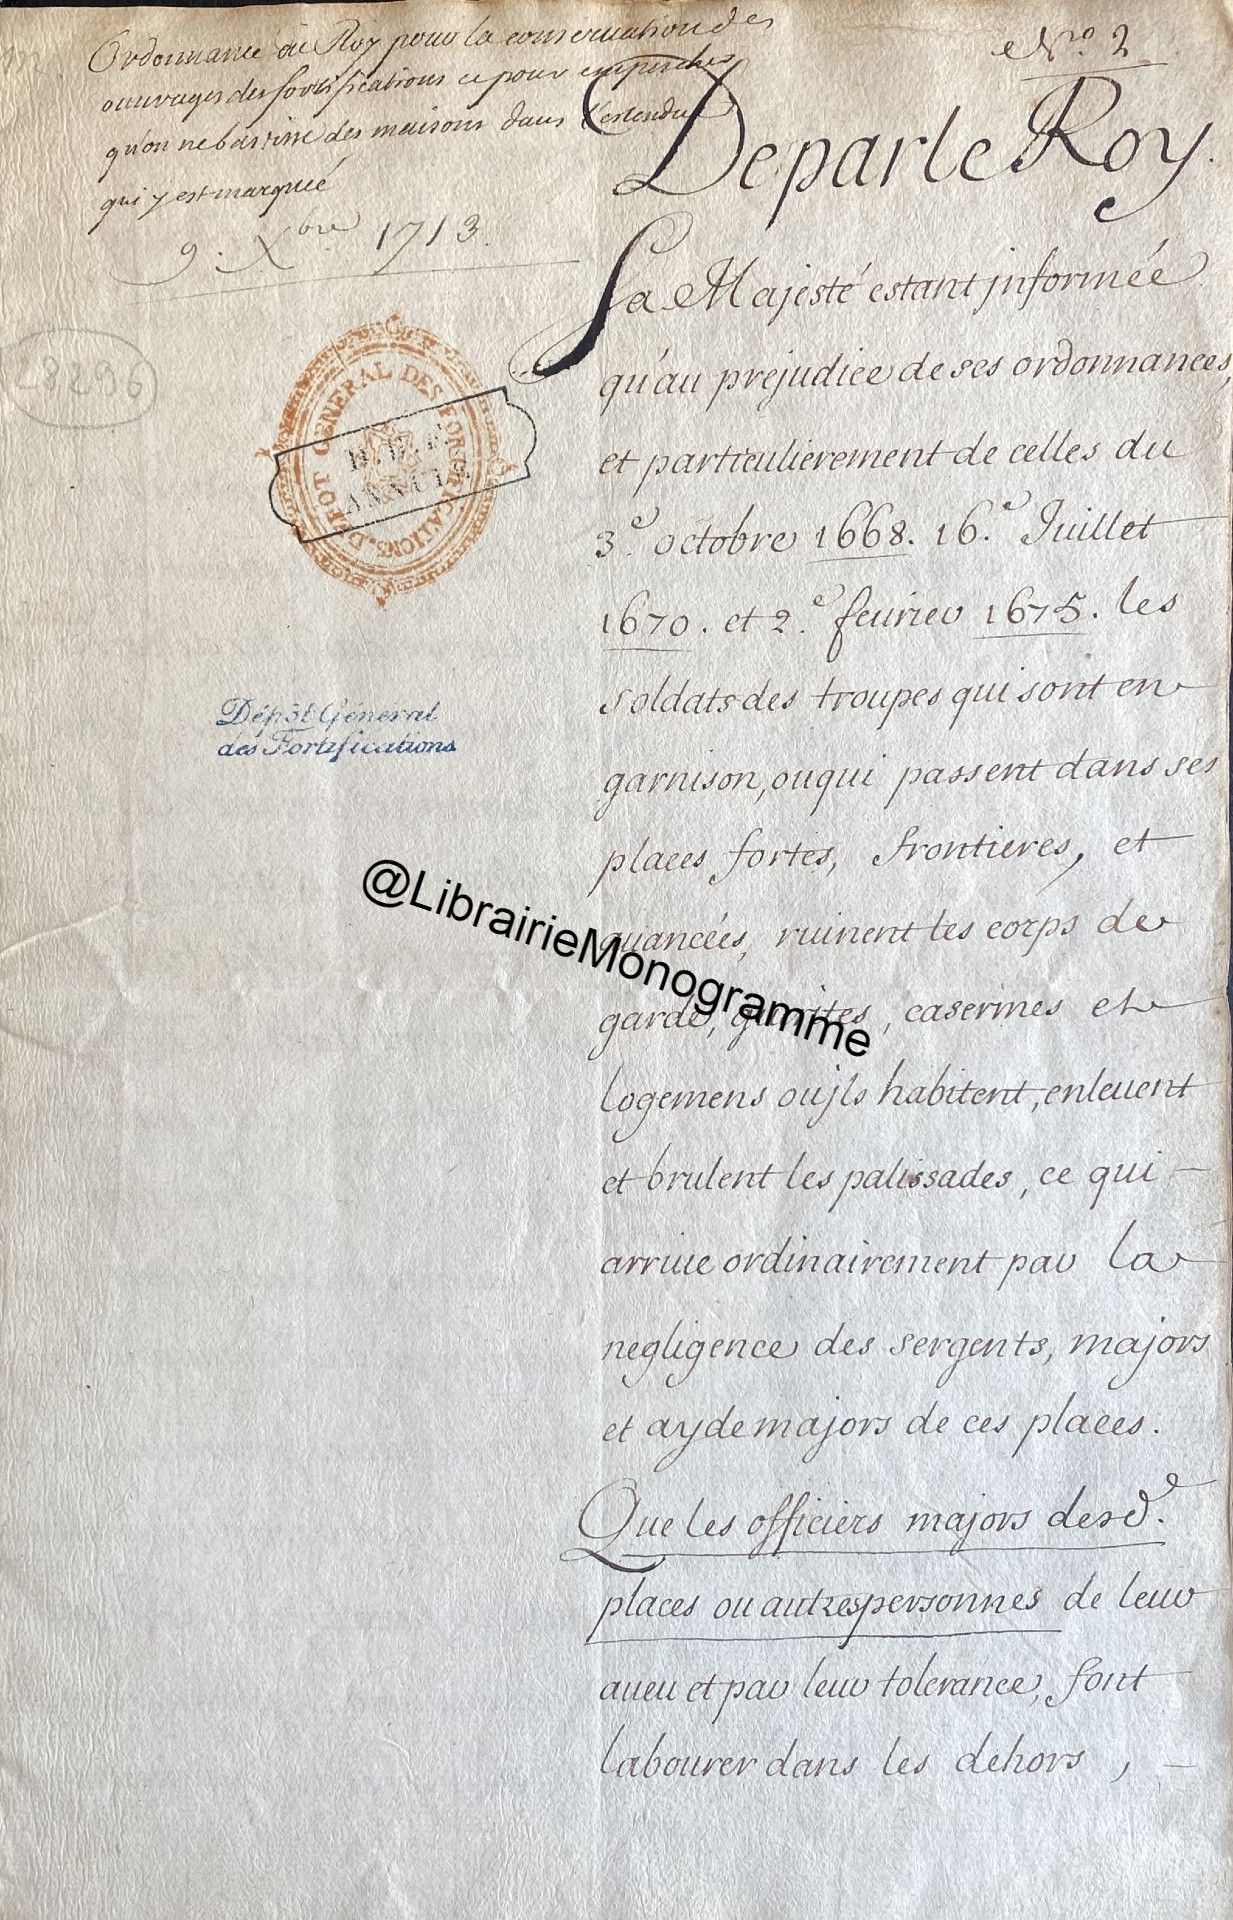 Ordonnance du Roy pour la conservation des
ouvrages des fortifications et pour empescher
qu'on ne bastisse des maisons dans l'estendue
qui y est marquée
9. Xbre 1713.
N.o 2
De par le Roy.
Sa Majesté estant jnformée
qu'au prejudice de ses ordonnances,
et particulierement de celles du
3.e octobre 1668. 16.e Juillet
1670. et 2.e feurier 1675. les
soldats des troupes qui sont en
garnison, ou qui passent dans ses
places fortes, frontieres, et
auancées, ruinent les corps de
garde, guerites, casermes et
logemens ou jls habitent, enleuent
et brulent les palissades, ce qui
arriue ordinairement par la
negligence des sergents, majors
et ayde majors de ces places.
Que les officiers majors desd.e
places ou autres personnes de leur
aueu et par leur tolerance, font
labourer dans les dehors,
28296
DEPOT GENERAL DES FORTIFICATIONS.
ANNULÉ
Dépôt Général
des Fortifications
@LibrairieMonogramme